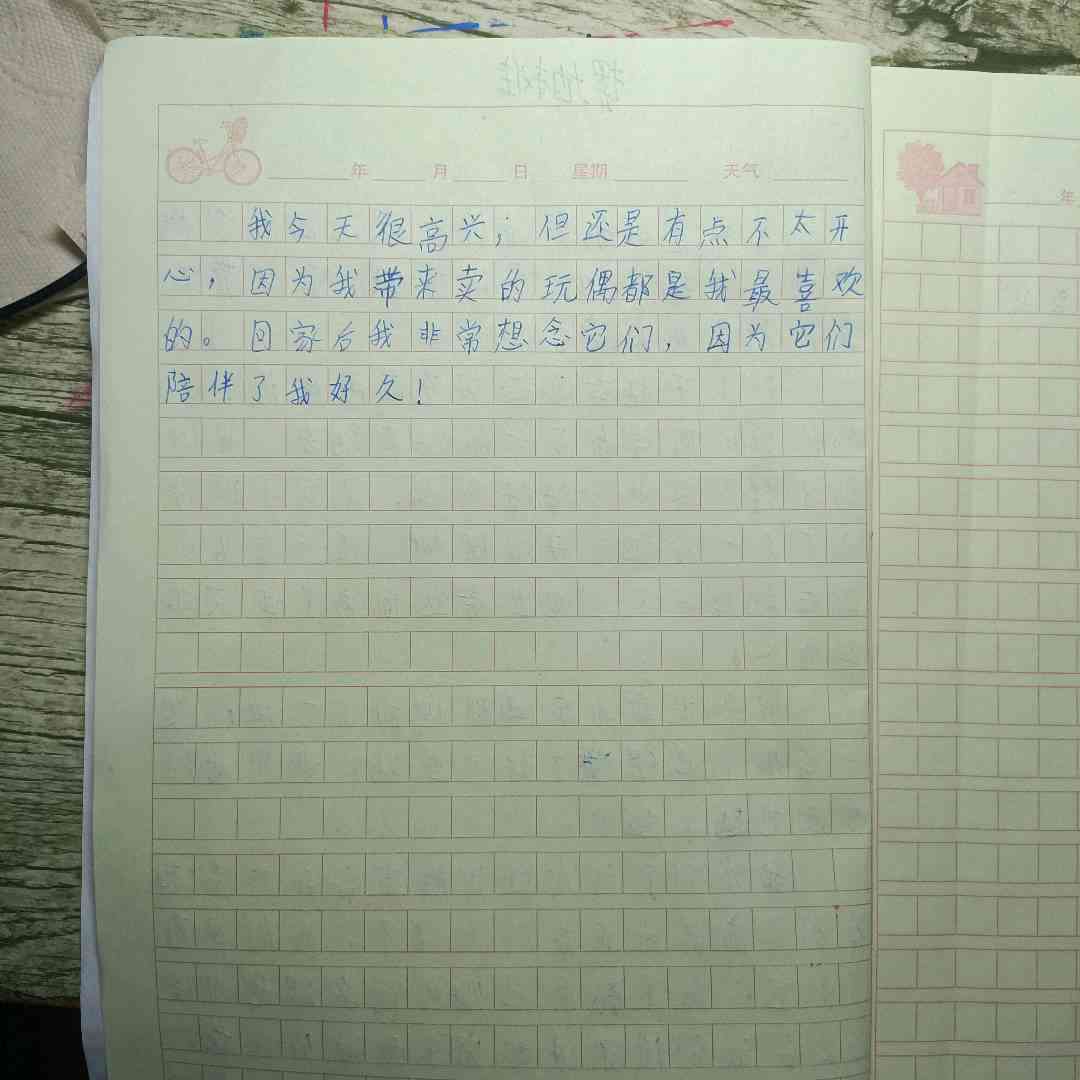 年 月 日 星期 天气
我今天很高兴；但还是有点不太开
心，因为我带来卖的玩偶都是我最喜欢
的。回家后我非常想念它们，因为它们
陪伴了我好久！
年